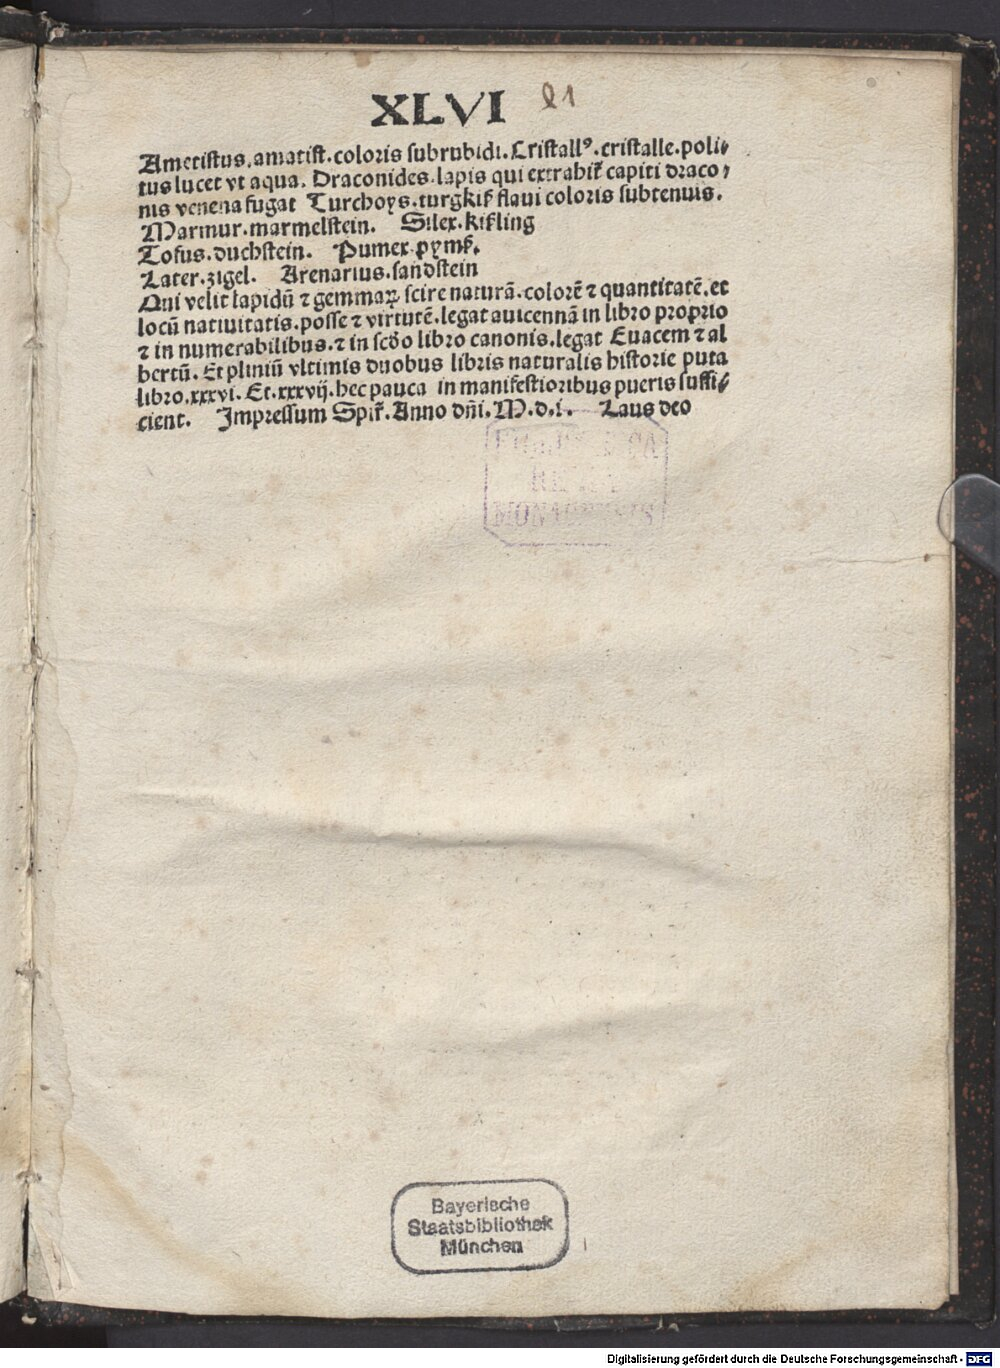 XLVI 21
Ametistus.amatist.coloris subrubidi.Cristallꝰ.cristalle.poli⸗
tus lucet vt aqua. Draconides.lapis qui extrahit᷑ capiti draco⸗
nis venena fugat Turchoys.turgkiß flaui coloris subtenuis.
Marmur.marmelstein. Silex.kißling
Tofus.duchstein. Pumex.pymß.
Later.zigel. Arenarius.sandstein
Qui velit lapidū ⁊ gemmaꝝ scire naturā.colorē ⁊ quantitatē.et
locū natiuitatis.posse ⁊ virtutē.legat auicennā in libro proprio
⁊ in numerabilibus.⁊ in scd̄o libro canonis.legat Euacem ⁊ al
bertū. Et pliniū vltimis duobus libris naturalis historie puta
libro.xxxvi. Et.xxxvij.hec pauca in manifestioribus pueris suffi⸗
cient. Jmpressum Spir̄.Anno dn̄i.M.d.i. Laus deo
MONACENSIS
Bayerische
Staatsbibliothek
München
Digitalisierung gefördert durch die Deutsche Forschungsgemeinschaft - DFG